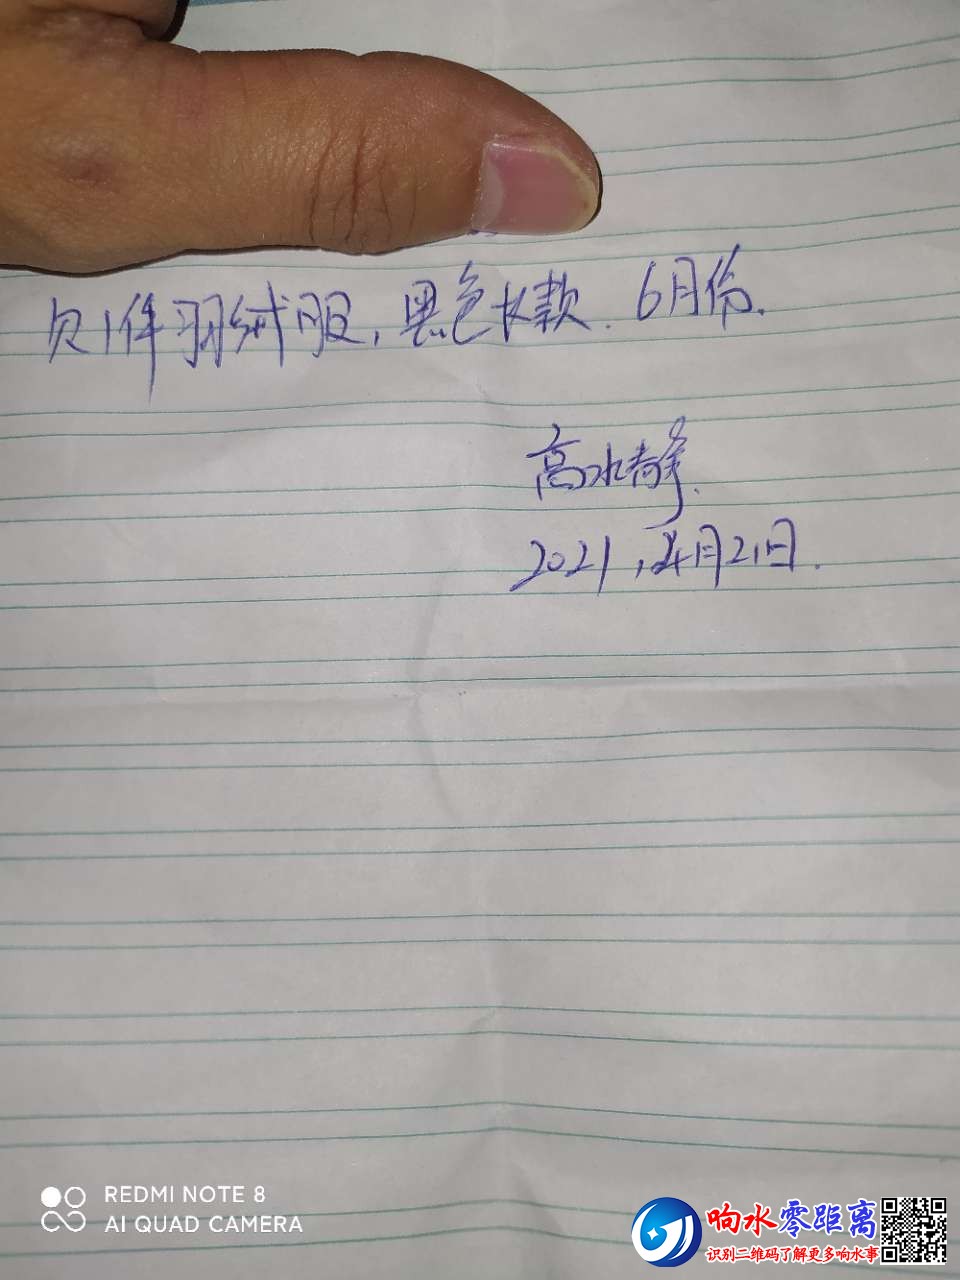 欠1件羽绒服,黑色长款.6月份.
高水静.
2021,4月21日.
REDMI NOTE 8
AI QUAD CAMERA
响水零距离
识别二维码了解更多响水事